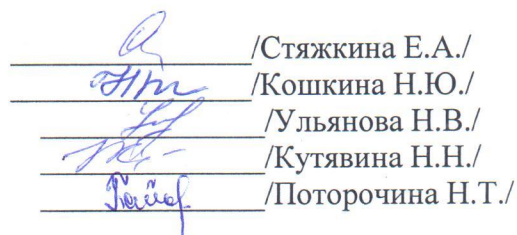 /Стяжкина Е.А./
/Кошкина Н.Ю./
/Ульянова Н.В./
/Кутявина Н.Н./
/Поторочина Н.Т./